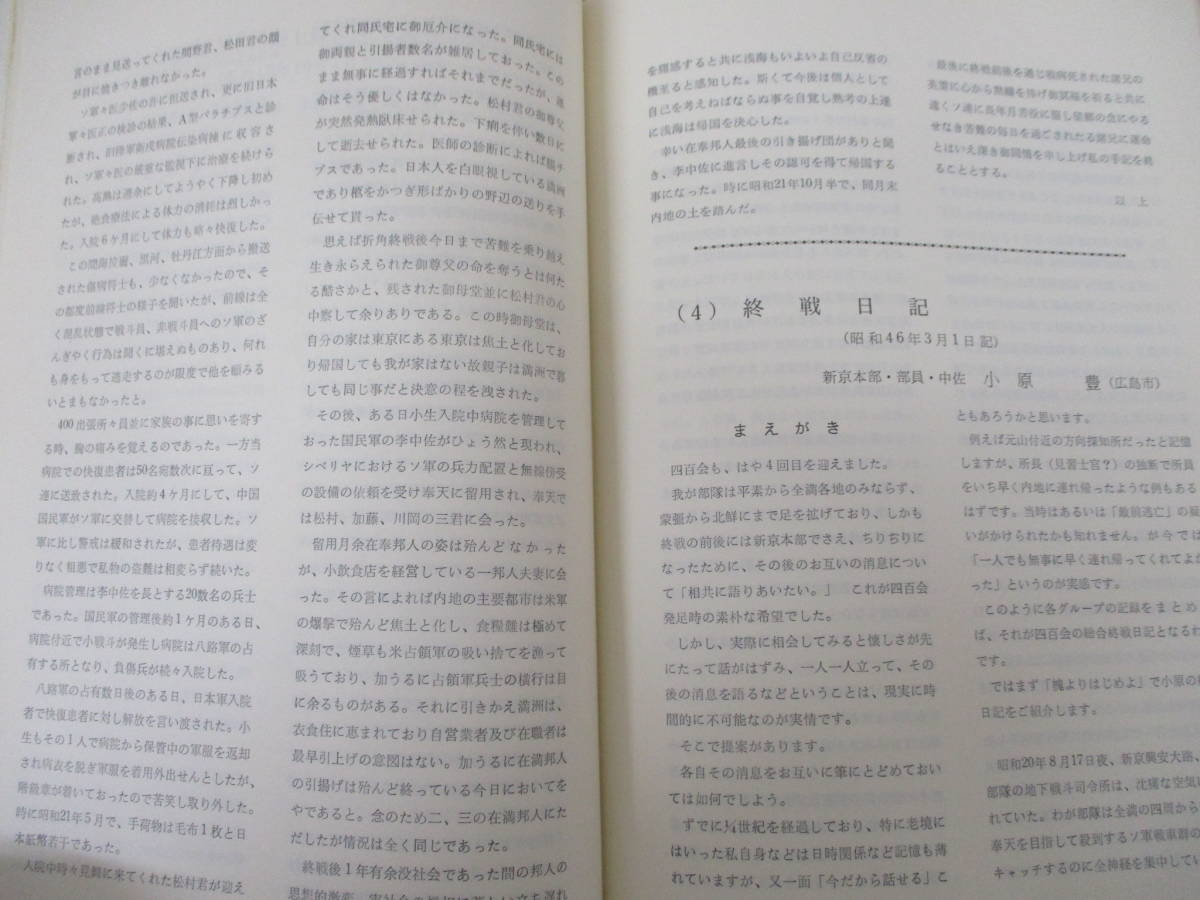 言のまま見送ってくれた間野君、松田君の顔
が目に焼きつき離れなかった。
ソ軍々医少佐の許に担送され、更に旧日本
軍々医正の検診の結果、A型パラチブスと診
断され、旧陸軍衛戍病院伝染病棟に収容さ
れ、ソ軍々医の厳重な監視下に治療を続けら
れた。高熱は運余にしてようやく下降し初め
たが、絶食療法による体力の消耗は烈しかっ
た。入院6ケ月にして体力も略々快復した。
この間海拉爾、黒河、牡丹江方面から搬送
された傷病将士も、少なくなかったので、そ
の都度前線将士の様子を聞いたが、前線は全
く混乱状態で戦斗員、非戦斗員へのソ軍のざ
んぎやく行為は聞くに堪えぬものあり、何れ
も身をもって逃走するのが限度で他を顧みる
いとまもなかったと。
400出張所々員並に家族の事に思いを寄す
る時、胸の痛みを覚えるのであった。一方当
病院での快復患者は50名宛数次に亘って、ソ
連に送致された。入院約4ケ月にして、中国
国民軍がソ軍に交替して病院を接収した。ソ
軍に比し警戒は緩和されたが、患者待遇は変
りなく粗悪で私物の盗難は相変らず続いた。
病院管理は李中佐を長とする20数名の兵士
であった。国民軍の管理後約1ケ月のある日、
病院付近で小戦斗が発生し病院は八路軍の占
有する所となり、負傷兵が続々入院した。
八路軍の占有数日後のある日、日本軍入院
者で快復患者に対し解放を言い渡された。小
生もその1人で病院から保管中の軍服を返却
され病衣を脱ぎ軍服を着用外出せんとしたが、
階級章が着いておったので苦笑し取り外した。
時に昭和21年5月で、手荷物は毛布1枚と日
本紙幣若干であった。
入院中時々見舞に来てくれた松村君が迎え
てくれ同氏宅に御厄介になった。同氏宅には
御両親と引揚者数名が雑居しておった。この
まま無事に経過すればそれまでだったが、運
命はそう優しくはなかった。松村君の御尊父
が突然発熱臥床せられた。下痢を伴い数日に
して逝去せられた。医師の診断によれば腸チ
ブスであった。日本人を白眼視している満洲
であり柩をかつぎ形ばかりの野辺の送りを手
伝せて貰った。
思えば折角終戦後今日まで苦難を乗り越え
生き永らえられた御尊父の命を奪うとは何た
る酷さかと、残された御母堂並に松村君の心
中察して余りありである。この時御母堂は、
自分の家は東京にある東京は焦土と化してお
り帰国しても我が家はない故親子は満洲で暮
しても同じ事だと決意の程を洩された。
その後、ある日小生入院中病院を管理して
おった国民軍の李中佐がひょう然と現われ、
シベリヤにおけるソ軍の兵力配置と無線傍受
の設備の依頼を受け奉天に留用され、奉天で
は松村、加藤、川岡の三君に会った。
留用月余在奉邦人の姿は殆んどなかった
が、小飲食店を経営している一邦人夫妻に会
った。その言によれば内地の主要都市は米軍
の爆撃で殆んど焦土と化し、食糧難は極めて
深刻で、煙草も米占領軍の吸い捨てを漁って
吸うており、加うるに占領軍兵士の横行は目
に余るものがある。それに引きかえ満洲は、
衣食住に恵まれており自営業者及び在職者は
最早引上げの意図はない。加うるに在満邦人
の引揚げは殆んど終っている今日においてを
やであると。念のため二、三の在満邦人にた
だしたが情況は全く同じであった。
終戦後1年有余没社会であった間の邦人の
思想的激変、
を痛感すると共に浅海もいよいよ自己反省の
機至ると感知した。斯くて今後は個人として
自己を考えねばならぬ事を自覚し熟考の上遂
に浅海は帰国を決心した。
幸い在奉邦人最後の引き揚げ団がありと聞
き、李中佐に進言しその認可を得て帰国する
事になった。時に昭和21年10月半で、同月末
内地の土を踏んだ。
最後に終戦前後を通じ戦病死された諸兄の
英霊に心から黙禱を捧げ御冥福を祈ると共に
遠くソ連に長年月苦役に服し望郷の念にやる
せなき苦難の毎日を過ごされたる諸兄に運命
とはいえ深き御同情を申し上げ私の手記を終
ることとする。
以上
(4) 終戦日記
(昭和46年3月1日記)
新京本部・部員・中佐 小原 豊(広島市)
まえがき
四百会も、はや4回目を迎えました。
我が部隊は平素から全満各地のみならず、
蒙疆から北鮮にまで足を拡げており、しかも
終戦の前後には新京本部でさえ、ちりぢりに
なったために、その後のお互いの消息につい
て「相共に語りあいたい。」 これが四百会
発足時の素朴な希望でした。
しかし、実際に相会してみると懐しさが先
にたって話がはずみ、一人一人立って、その
後の消息を語るなどということは、現実に時
間的に不可能なのが実情です。
そこで提案があります。
各自その消息をお互いに筆にとどめておい
ては如何でしよう。
すでに¼世紀を経過しており、特に老境に
はいった私自身などは日時関係など記憶も薄
れていますが、又一面「今だから話せる」こ
ともあろうかと思います。
例えば元山付近の方向探知所だったと記憶
しますが、所長(見習士官?)の独断で所員
をいち早く内地に連れ帰ったような例もある
はずです。当時はあるいは「敵前逃亡」の疑
いがかけられたかも知れません。が今では
「一人でも無事に早く連れ帰ってくれてよか
った」というのが実感です。
このように各グループの記録をまとめ
ば、それが四百会の総合終戦日記となるわ
です。
ではまず「隗よりはじめよ」で小原の
日記をご紹介します。
昭和20年8月17日夜、新京興安大路、
部隊の地下戦斗司令所は、沈痛な空気
れていた。わが部隊は全満の四周から
奉天を目指して殺到するソ軍戦車群の
キャッチするのに全神経を集中してい